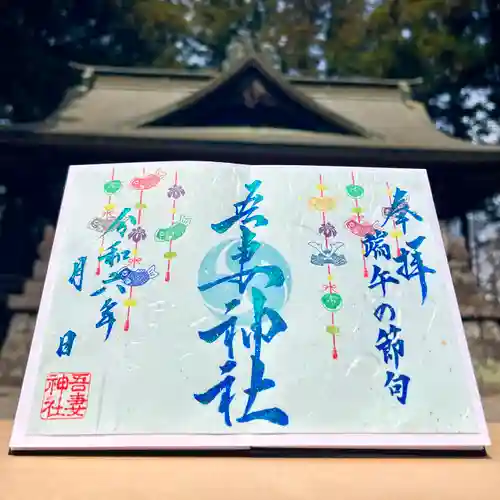 奉拝
端午の節句
吾妻神社
令和六年
月
日
吾妻
神社